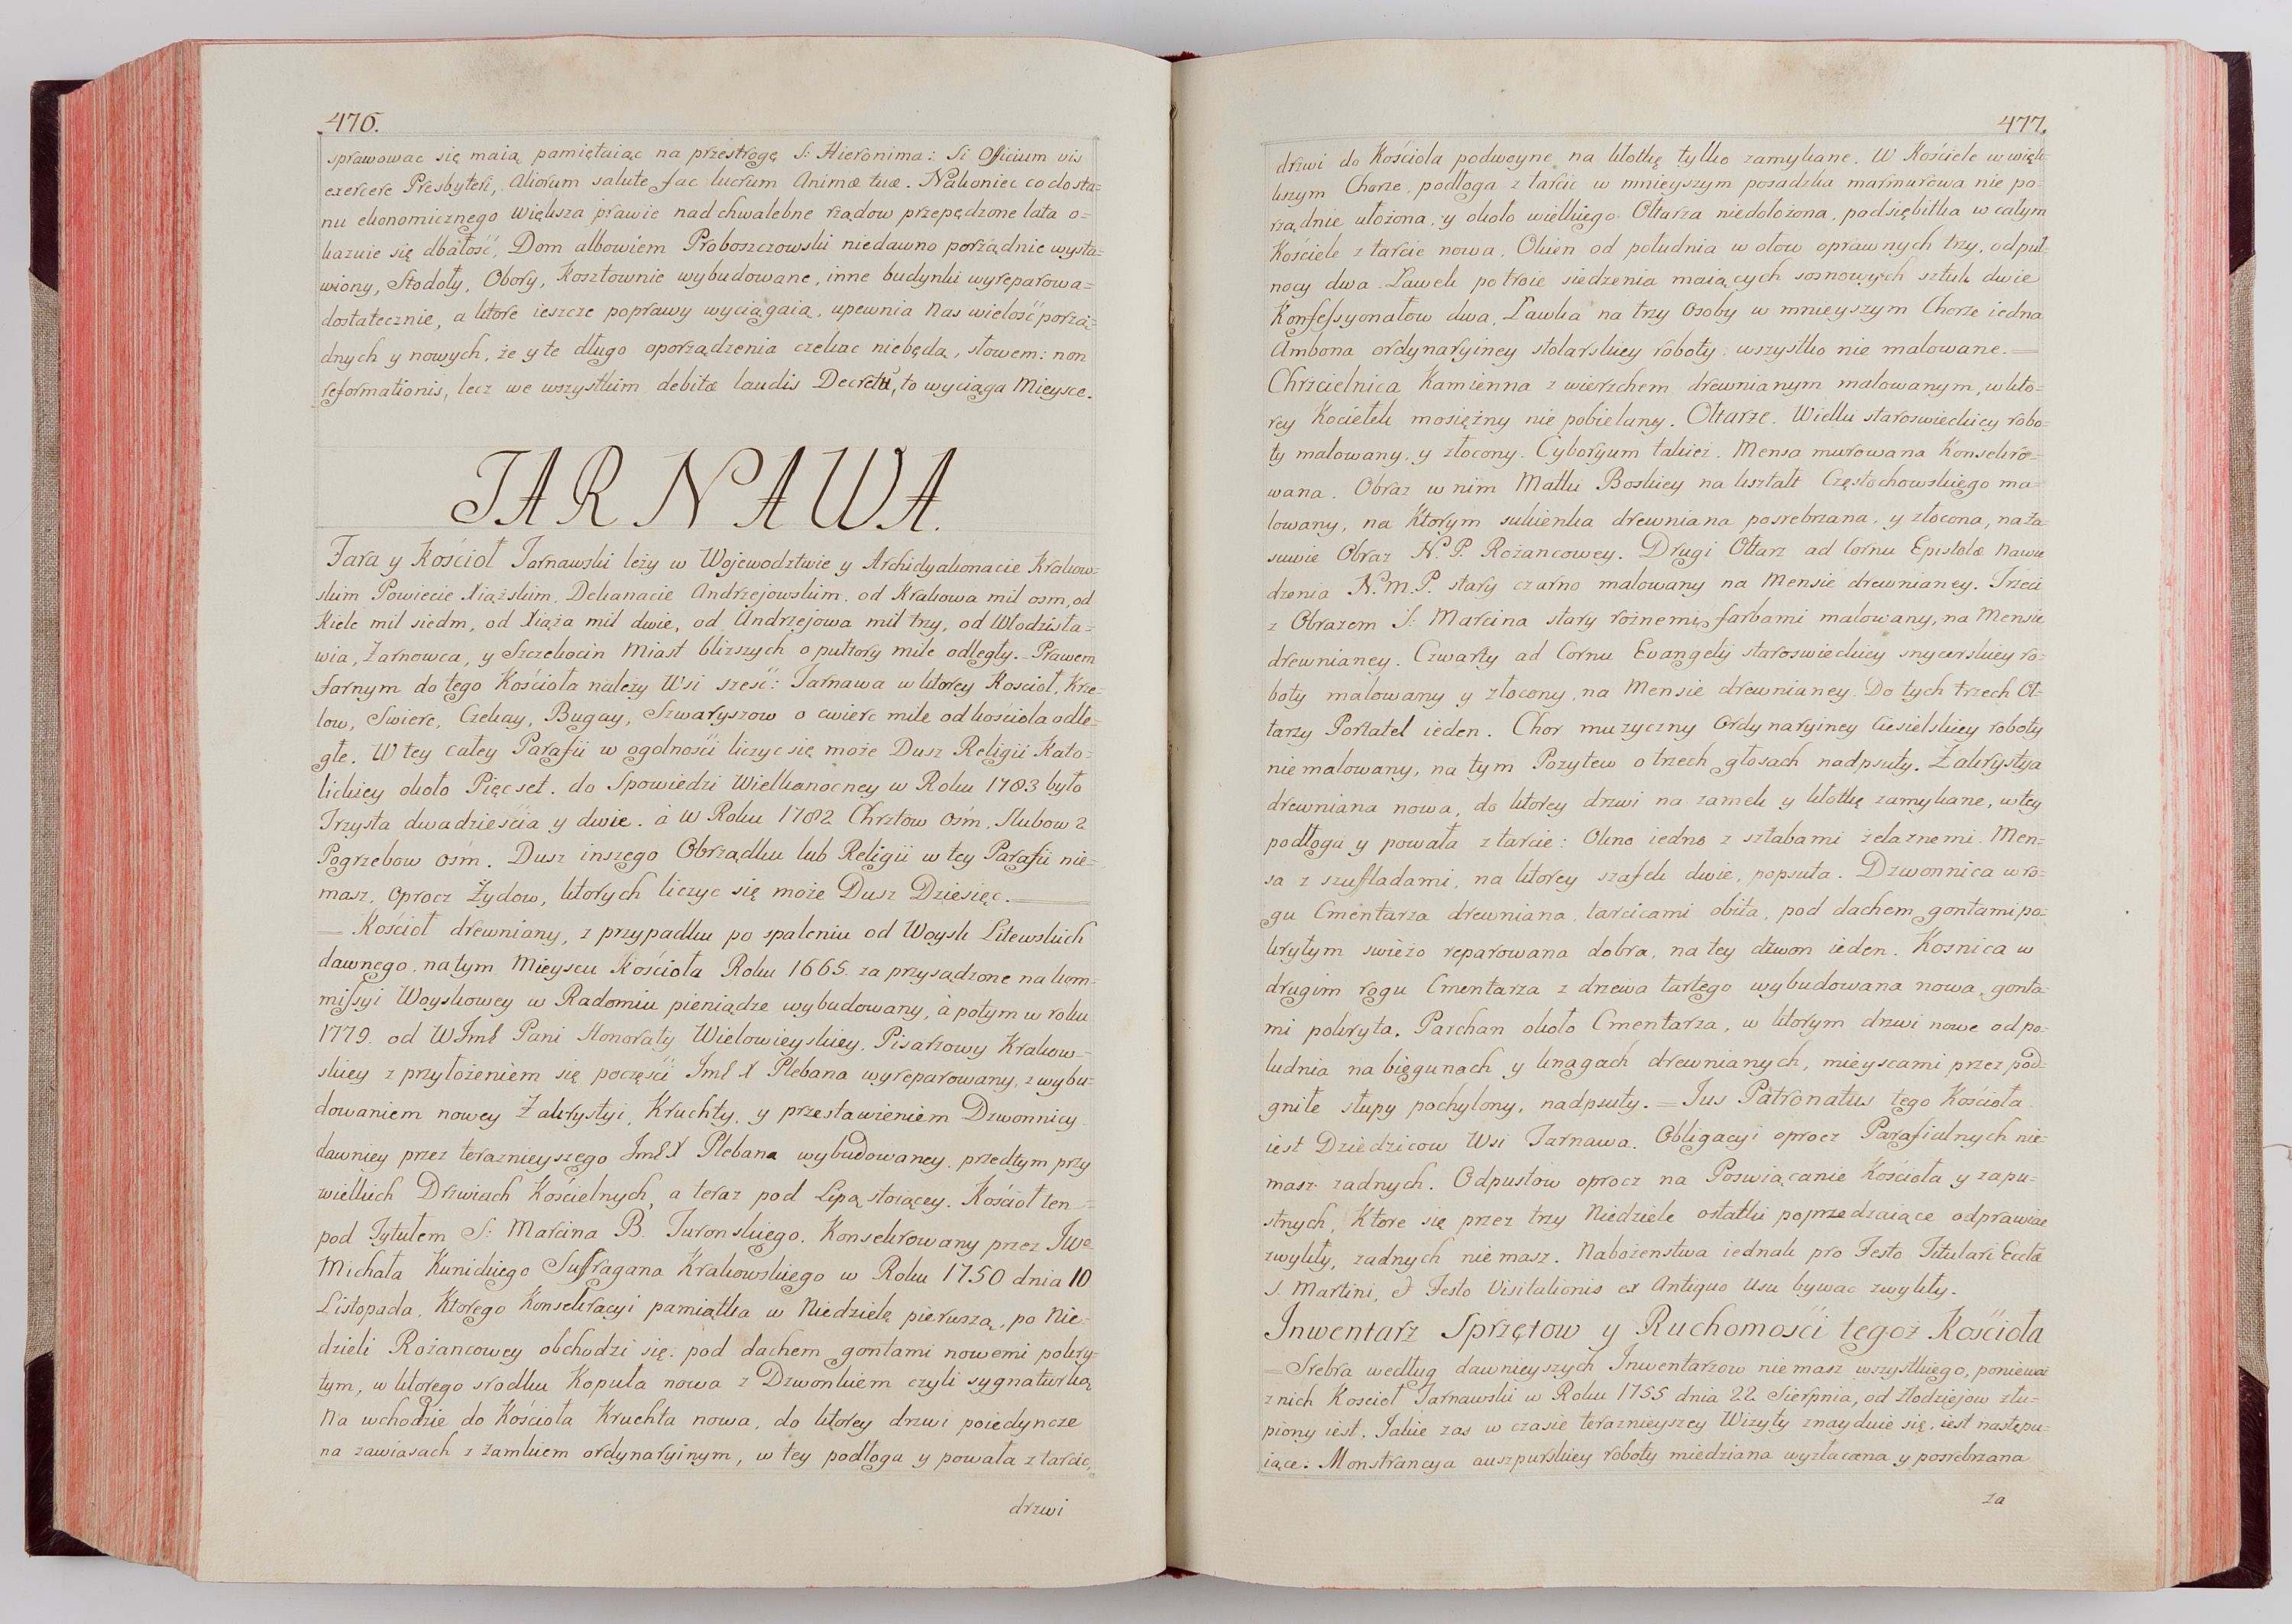 476.
sprawowac się maią pamiętaiąc na przestrogę S: Hieronima: Si Officium vis
exercere Presbyteri, Aliorum salute fac lucrum Animæ tuæ. Nakoniec co dosta=
nu ekonomicznego większa prawie nad chwalebne rządow przepędzone lata o=
kazuie się dbałość, Dom albowiem Proboszczowski niedawno porządnie wysta=
wiony, Stodoły, Obory, kosztownie wybudowane, inne budynki wyreparowa=
dostatecznie, a ktore ieszcze poprawy wyciągaią, upewnia Nas wielość porzą=
dnych y nowych, że y te długo oporządzenia czekac niebędą, słowem: non
reformationis, lecz we wszystkim debitæ laudis Decretu, to wyciąga Mieysce.
TARNAWA.
Fara y Kościoł Tarnawski leży w Wojewodztwie y Archidyakonacie Krakow=
skim Powiecie Xiązskim, Dekanacie Andrzejowskim. od Krakowa mil osm, od
Kielc mil siedm, od Xiąża mil dwie, od Andrzejowa mil trzy, od Włodzisła=
wia, Żarnowca, y Szczekocin Miast bliższych o pułtory mile odległy. Prawem
farnym do tego Kościoła należy Wsi sześć: Tarnawa w ktorey Kościoł, Krze=
low, Swierc, Czekay, Bugay, Szwaryszow o cwierc mile od kościola odle=
głe. W tey całey Parafii w ogolności liczyc się może Dusz Religii Kato=
lickiey około Pięcset. do Spowiedzi Wielkanocney w Roku 1783 było
Trzysta dwadzieścia y dwie. à w Roku 1782 Chrztow Osm, Slubow 2
Pogrzebow osm. Dusz inszego Obrządku lub Religii w tey Parafii nie=
masz, oprocz Żydow, ktorych liczyc się może Dusz Dziesięc.
= Kościoł drewniany, z przypadku po spaleniu od Woysk Litewskich
dawnego, na tym Mieyscu Kościoła Roku 1665. za przysądzone na kom=
missyi Woyskowey w Radomiu pieniądze wybudowany, à potym w roku
1779. od WJmć Pani Honoraty Wielowieyskiey, Pisarzowy Krakow=
skiey z przyłożeniem się poczęści Jmć X Plebana wyreparowany, z wybu=
dowaniem nowey Zakrystyi, Kruchty, y przestawieniem Dzwonnicy
dawniey przez teraznieyszego Jmć X Plebana wybudowaney, przedtym przy
wielkich Drzwiach Kościelnych, a teraz pod Lipą stoiącey. Kościoł ten =
pod Tytułem S: Marcina B. Turonskiego. Konsekrowany przez JWo
Michała Kunickiego Suffragana Krakowskiego w Roku 1750 dnia 10
Listopada. Ktorego Konsekracyi pamiątka w Niedzielę pierwszą, po Nie=
dzieli Rożancowey obchodzi się. pod dachem gontami nowemi pokry=
tym, w ktorego srodku Kopuła nowa z Dzwonkiem czyli sygnaturką
Na wchodzie do Kościoła Kruchta nowa, do ktorey drzwi poiedyncze
na zawiasach z zamkiem ordynaryinym, w tey podłoga y powała z tarcic,
drzwi
477.
drzwi do Kościola podwoyne na kłotkę tylko zamykane. W Kościele w więk=
kszym Chorze, podłoga z tarcic w mnieyszym posadzka marmurowa nie po=
rządnie ułożona, y około wielkiego Ołtarza niedołożona, podsiębitka w całym
Kościele z tarcic nowa, Okien od południa w ołow oprawnych trzy, od puł=
nocy dwa. Ławek po troie siedzenia maiących sosnowych sztuk dwie
Konfessyonałow dwa, Ławka na trzy osoby w mnieyszym Chorze iedna
Ambona ordynaryiney stolarskiey roboty. wszystko nie malowane. =
Chrzcielnica Kamienna z wierzchem drewnianym malowanym, w kto=
rey Kociełek mosiężny nie pobielany. Ołtarze. Wielki staroswieckiey robo=
ty malowany, y złocony. Cyboryum takież. Mensa murowana Konsekro=
wana. Obraz w nim Matki Boskiey na kształt Częstochowskiego ma=
lowany, na Ktorym sukienka drewniana posrebrzana, y złocona, na za=
suwie Obraz N. P. Rożancowey. Drugi Ołtarz ad Cornu Epistolæ Nawie
dzenia N. M. P. stary czarno malowany na Mensie drewnianey. Trzeci
z Obrazem S: Marcina stary rożnemi farbami malowany, na Mensie
drewnianey. Czwarty ad Cornu Evangelij staroswieckiey snycerskiey ro=
boty malowany y złocony, na Mensie drewnianey. Do tych trzech Oł=
tarzy Portatel ieden. Chor muzyczny Ordynaryiney Ciesielskiey roboty
nie malowany, na tym Pozytew o trzech głosach nadpsuty. Zakrystya
drewniana nowa, do ktorey drzwi na zamek y kłotkę zamykane, w tey
podłoga y powała z tarcic: Okno iedno z sztabami żelaznemi. Men=
sa z szufladami, na ktorey szafek dwie, popsuta. Dzwonnica w ro=
gu Cmentarza drewniana, tarcicami obita, pod dachem gontami po=
krytym swieżo reparowana dobra, na tey dzwon ieden. Kosnica w
drugim rogu Cmentarza z drzewa tartego wybudowana nowa, gonta=
mi pokryta. Parchan około Cmentarza, w ktorym drzwi nowe od po=
ludnia na biegunach y knagach drewnianych, mieyscami przez pod=
gniłe słupy pochylony, nadpsuty. = Jus Patronatus tego Kościoła
iest Dziedzicow Wsi Tarnawa. Obligacyi oprocz Parafialnych nie=
masz zadnych. Odpustow oprocz na Poswiącanie Kościoła y zapu=
stnych, Ktore się przez trzy Niedziele ostatki poprzedzaiące odprawiac
zwykły, zadnych niemasz. Nabożenstwa iednak pro Festo Titulari Ecclæ
S. Martini, et Festo Visitationis ex Antiquo Usu bywac zwykły.
Inwentarz Sprzętow y Ruchomości tegoż Kościoła
= Srebra według dawnieyszych Inwentarzow niemasz wszystkiego, ponieważ
z nich Kościoł Tarnawski w Roku 1755 dnia 22 Sierpnia, od Złodziejow złu=
piony iest. Jakie zas w czasie teraznieyszey Wizyty znayduie się, iest następu=
iące. Monstrancya auszpurskiey roboty miedziana wyzłacana y posrebrzana
za